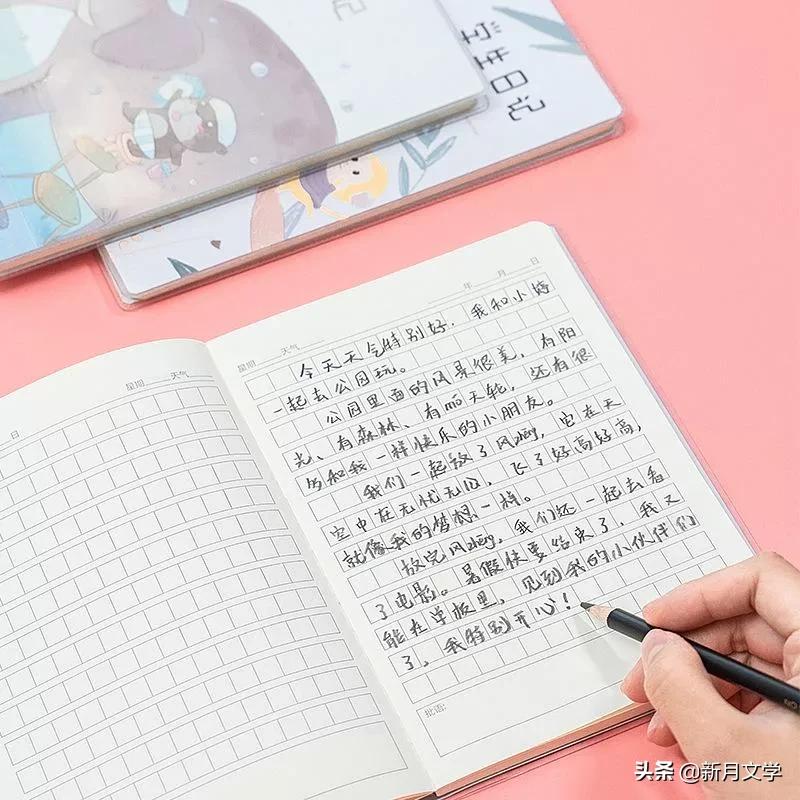 记
学生日记
年 月 日
星期 天气
日
星期 天气
今天天气特别好，我和小婷
一起去公园玩。
公园里面的风景很美，有阳
光、有森林、有摩天轮，还有很
多和我一样快乐的小朋友。
我们一起放了风zheng，它在天
空中在无忧无虑，飞了好高好高，
就像我的梦想一样。
放完风zheng，我们还一起去看
了电影。暑假快要结束了，我又
能在学校里，见到我的小伙伴们
了，我特别开心！
批语：
头条 @新月文学